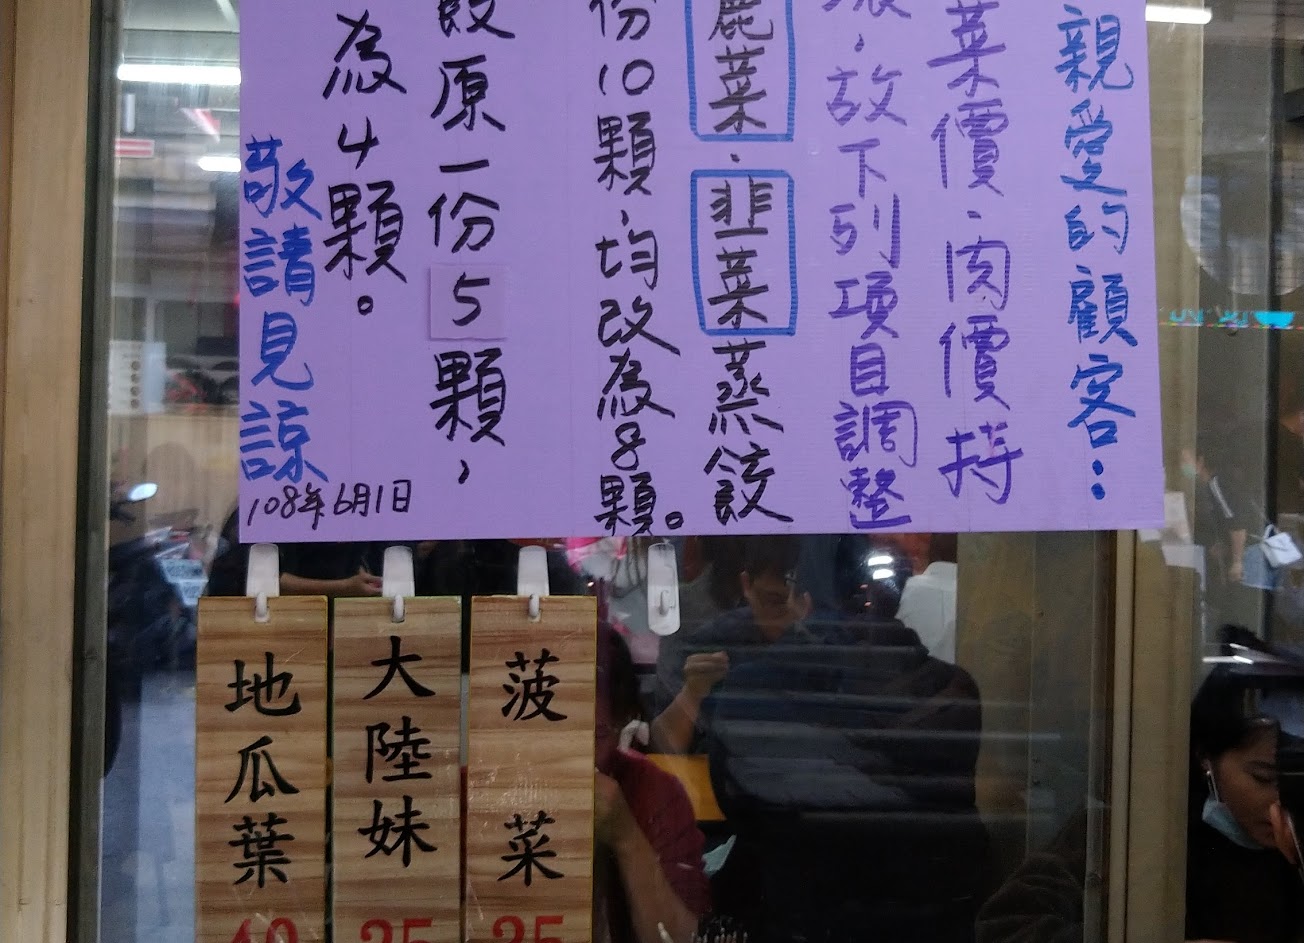 親愛的顧客：
菜價、肉價持
故下列項目調整
麗菜、韭菜蒸餃
份10顆，均改為8顆。
餃原一份5顆，
為4顆。
敬請見諒
108年6月1日
菠菜
大陸妹
地瓜葉